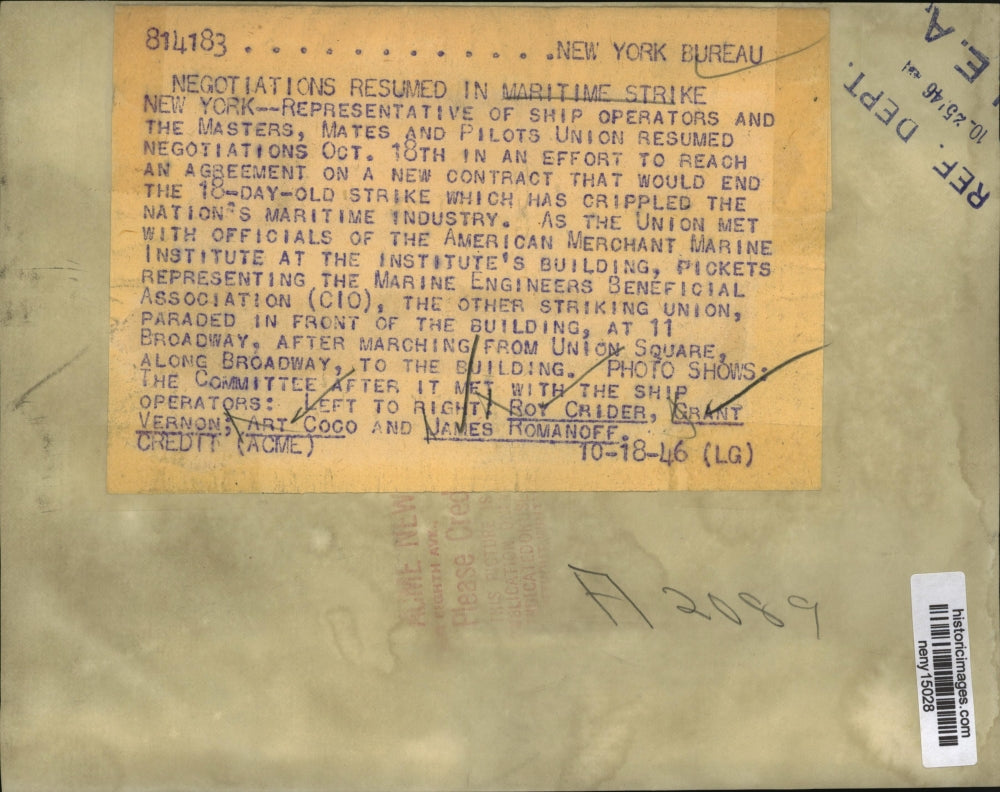 814183 . . . . . . . . . . . . . .NEW YORK BUREAU
NEGOTIATIONS RESUMED IN MARITIME STRIKE
NEW YORK--REPRESENTATIVE OF SHIP OPERATORS AND
THE MASTERS, MATES AND PILOTS UNION RESUMED
NEGOTIATIONS OCT. 18TH IN AN EFFORT TO REACH
AN AGREEMENT ON A NEW CONTRACT THAT WOULD END
THE 18-DAY-OLD STRIKE WHICH HAS CRIPPLED THE
NATION'S MARITIME INDUSTRY. AS THE UNION MET
WITH OFFICIALS OF THE AMERICAN MERCHANT MARINE
INSTITUTE AT THE INSTITUTE'S BUILDING, PICKETS
REPRESENTING THE MARINE ENGINEERS BENEFICIAL
ASSOCIATION (CIO), THE OTHER STRIKING UNION,
PARADED IN FRONT OF THE BUILDING, AT 11
BROADWAY, AFTER MARCHING FROM UNION SQUARE,
ALONG BROADWAY, TO THE BUILDING. PHOTO SHOWS:
THE COMMITTEE AFTER IT MET WITH THE SHIP
OPERATORS: LEFT TO RIGHT, ROY CRIDER, GRANT
VERNON, ART COCO AND JAMES ROMANOFF.
CREDIT (ACME) 10-18-46 (LG)
E. A
10-25'46
REF. DEPT.
ACME NEW
EIGHTH AVE.
Please Cred
THIS PICTURE IS
A 2089
historicimages.com
neny15028